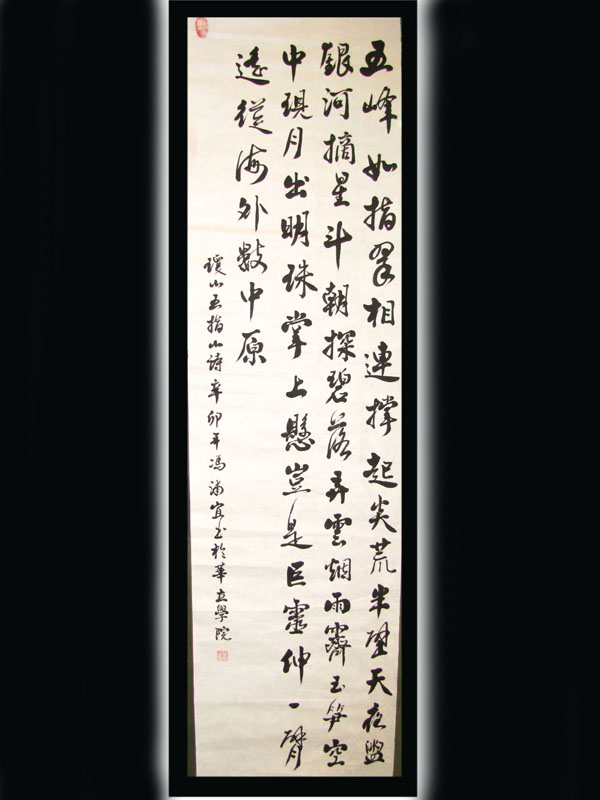 五峰如指翠相連撐起炎荒半壁天夜盥
銀河摘星斗朝探碧落弄雲烟雨霽玉笋空
中現月出明珠掌上懸豈是巨靈伸一臂
遙從海外數中原
瓊山五指山詩辛卯年馮宜书於華立學院